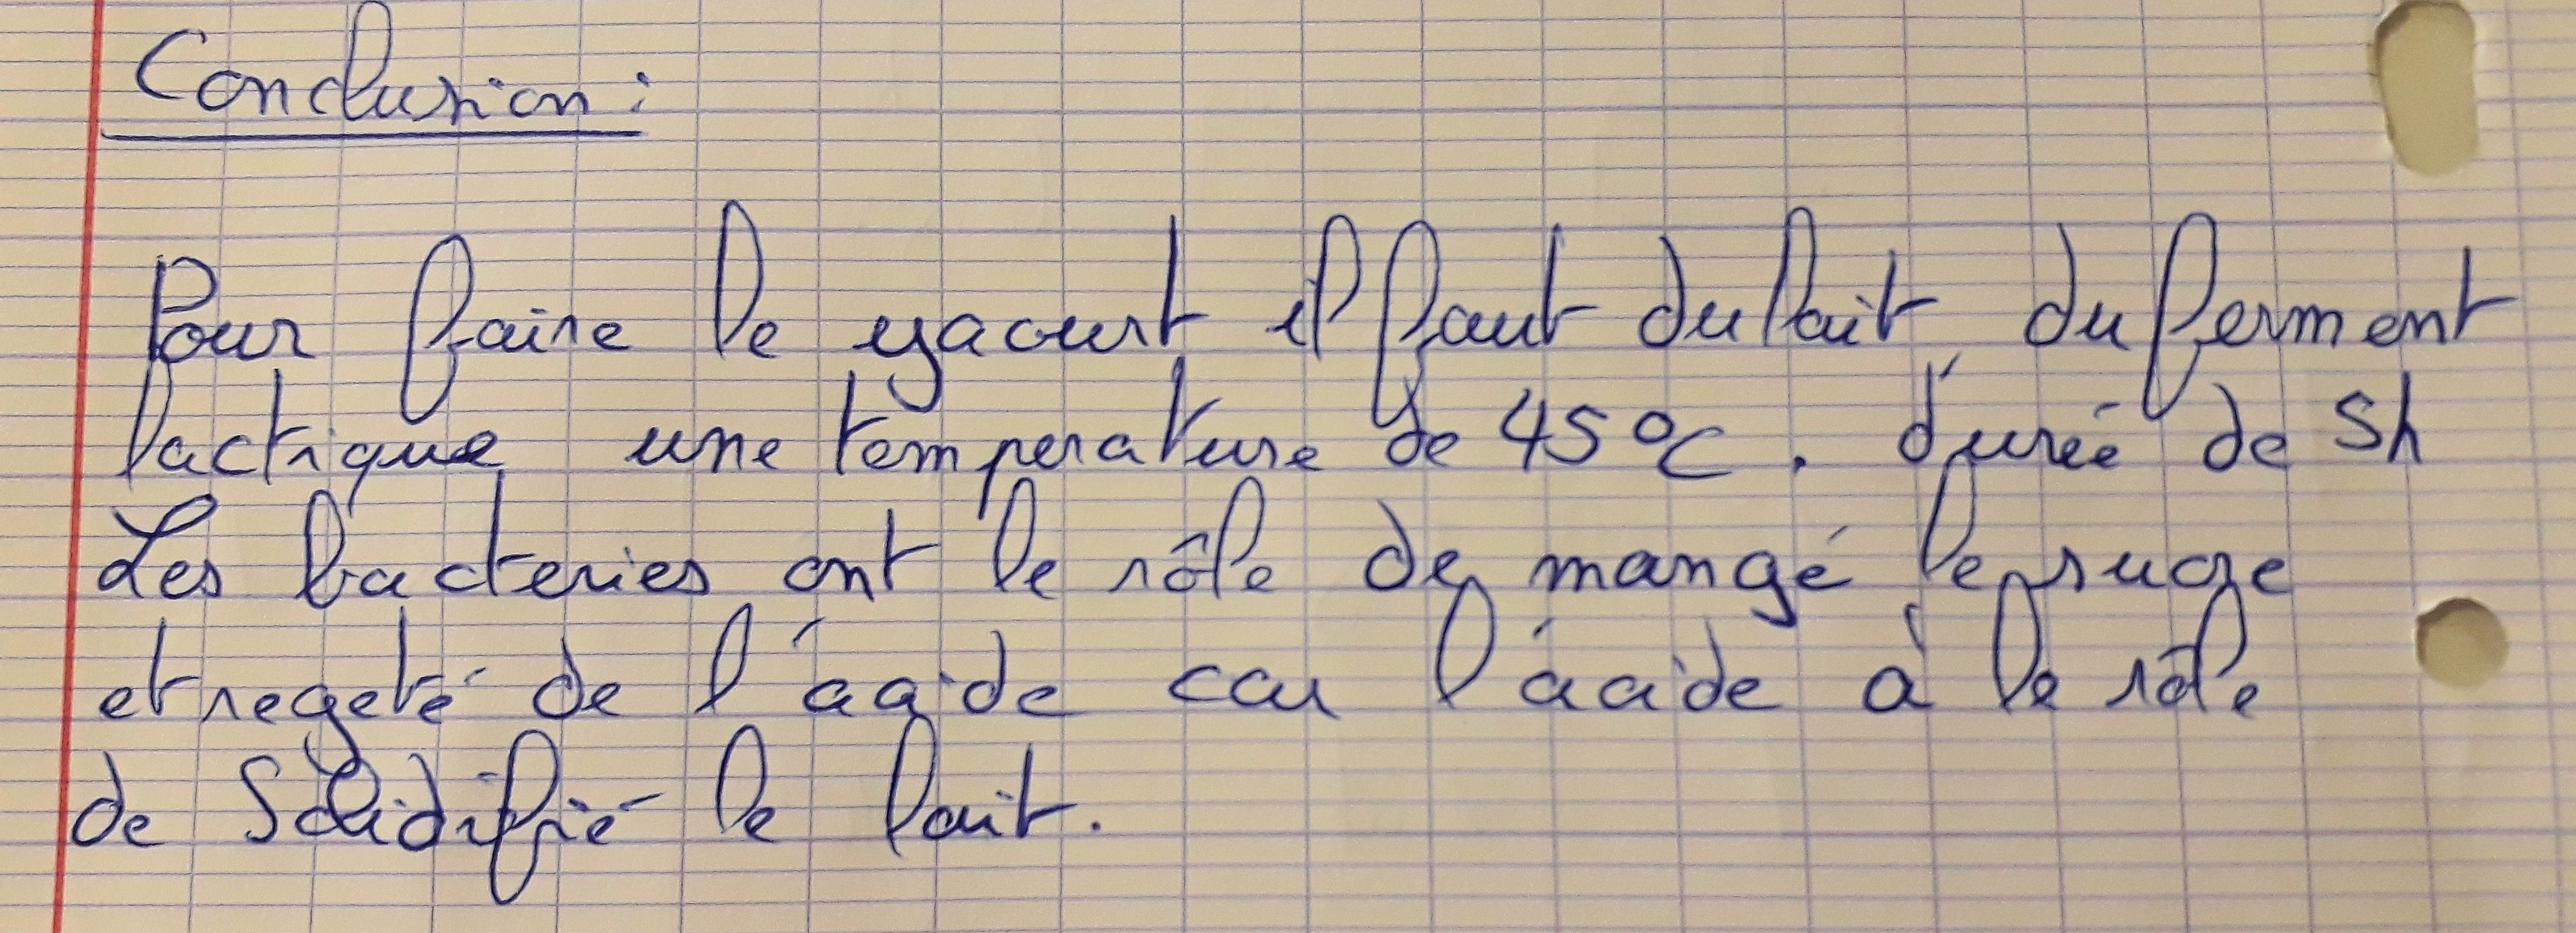 Conclusion:
Pour faire le yaourt il faut du lait du ferment
lactique une temperature de 45°C. d'urée de 5h
Les bacteries ont le rôle de mangé le sucre
et regeté de l'acide car l'acide à le rôle
de Solidifié le lait.